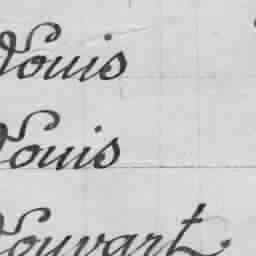 Louis
Louis
Louvart